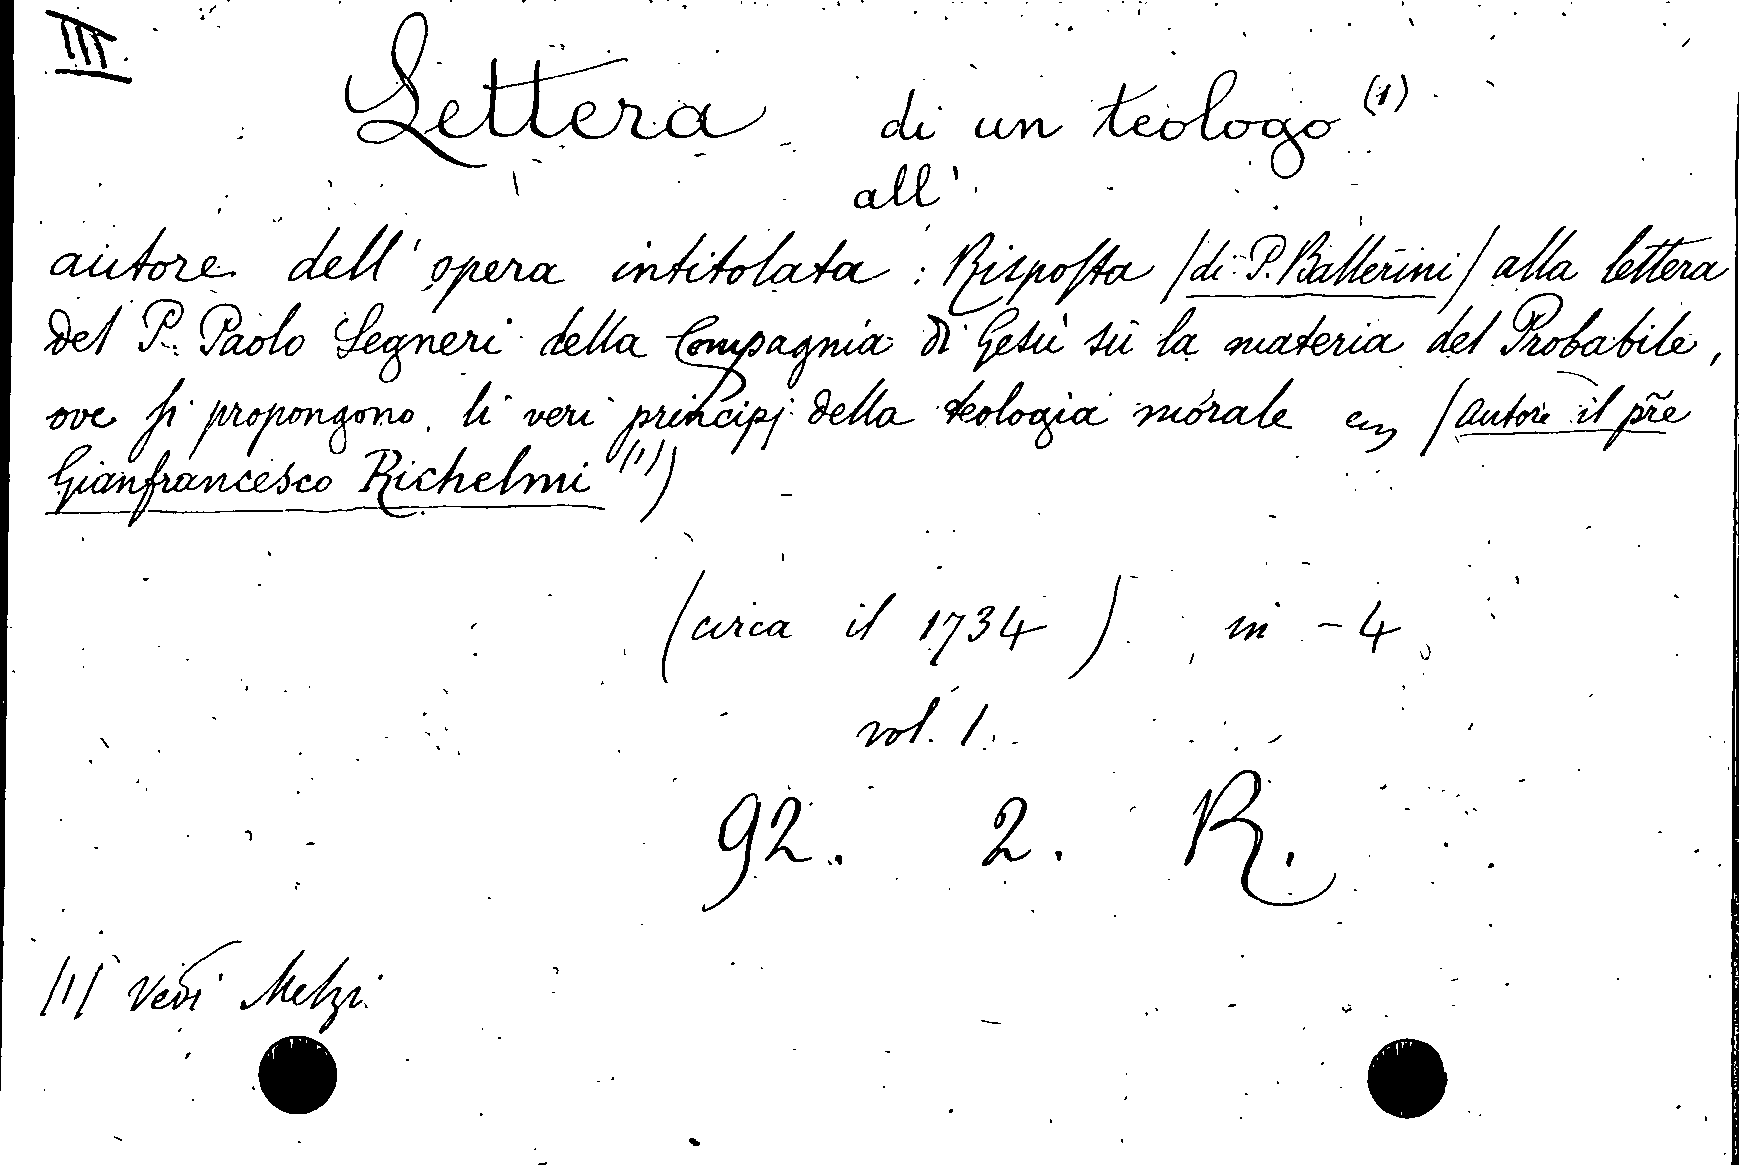 III.
Lettera di un teologo (1)
all'
autore dell' opera intitolata: Risposta (di P. Ballerini) alla lettera
del P. Paolo Segneri della Compagnia di Gesù sù la materia del Probabile,
ove si propongono li veri principj della teologia morale (autore il pre
Gianfrancesco Richelmi (1))
(circa il 1734) in-4
vol. 1.
92. 2. R.
(1) Vedi Melzi.